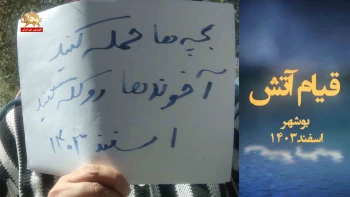 بچه‌ها حمله کنید
آخوندها رو کله کنید
اسفند ۱۴۰۳
قیام آتش
بوشهر
اسفند ۱۴۰۳